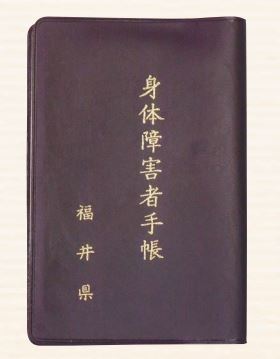 身体障害者手帳
福井県